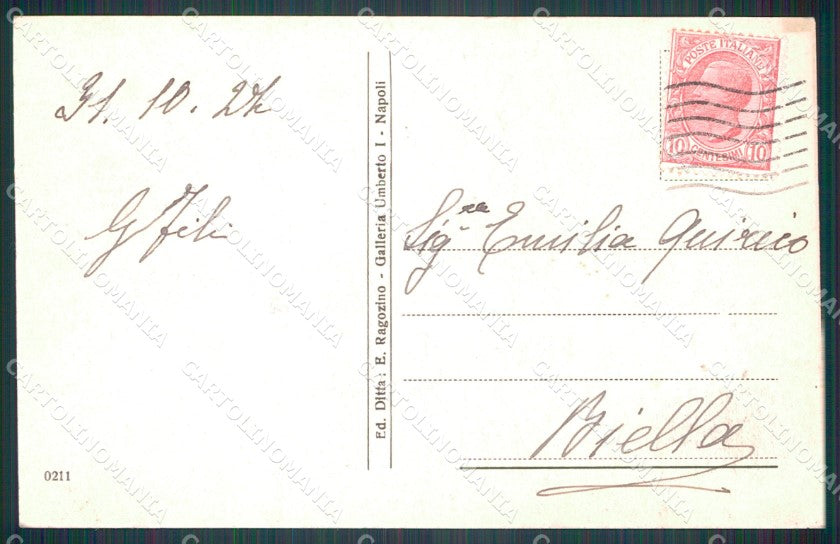 31. 10. 24
Ed. Ditta: E. Ragozino - Galleria Umberto I - Napoli
POSTE ITALIANE
10 CENTESIMI 10
Sig.ra Emilia Quirico
Biella
0211
CARTOLINOMANIA